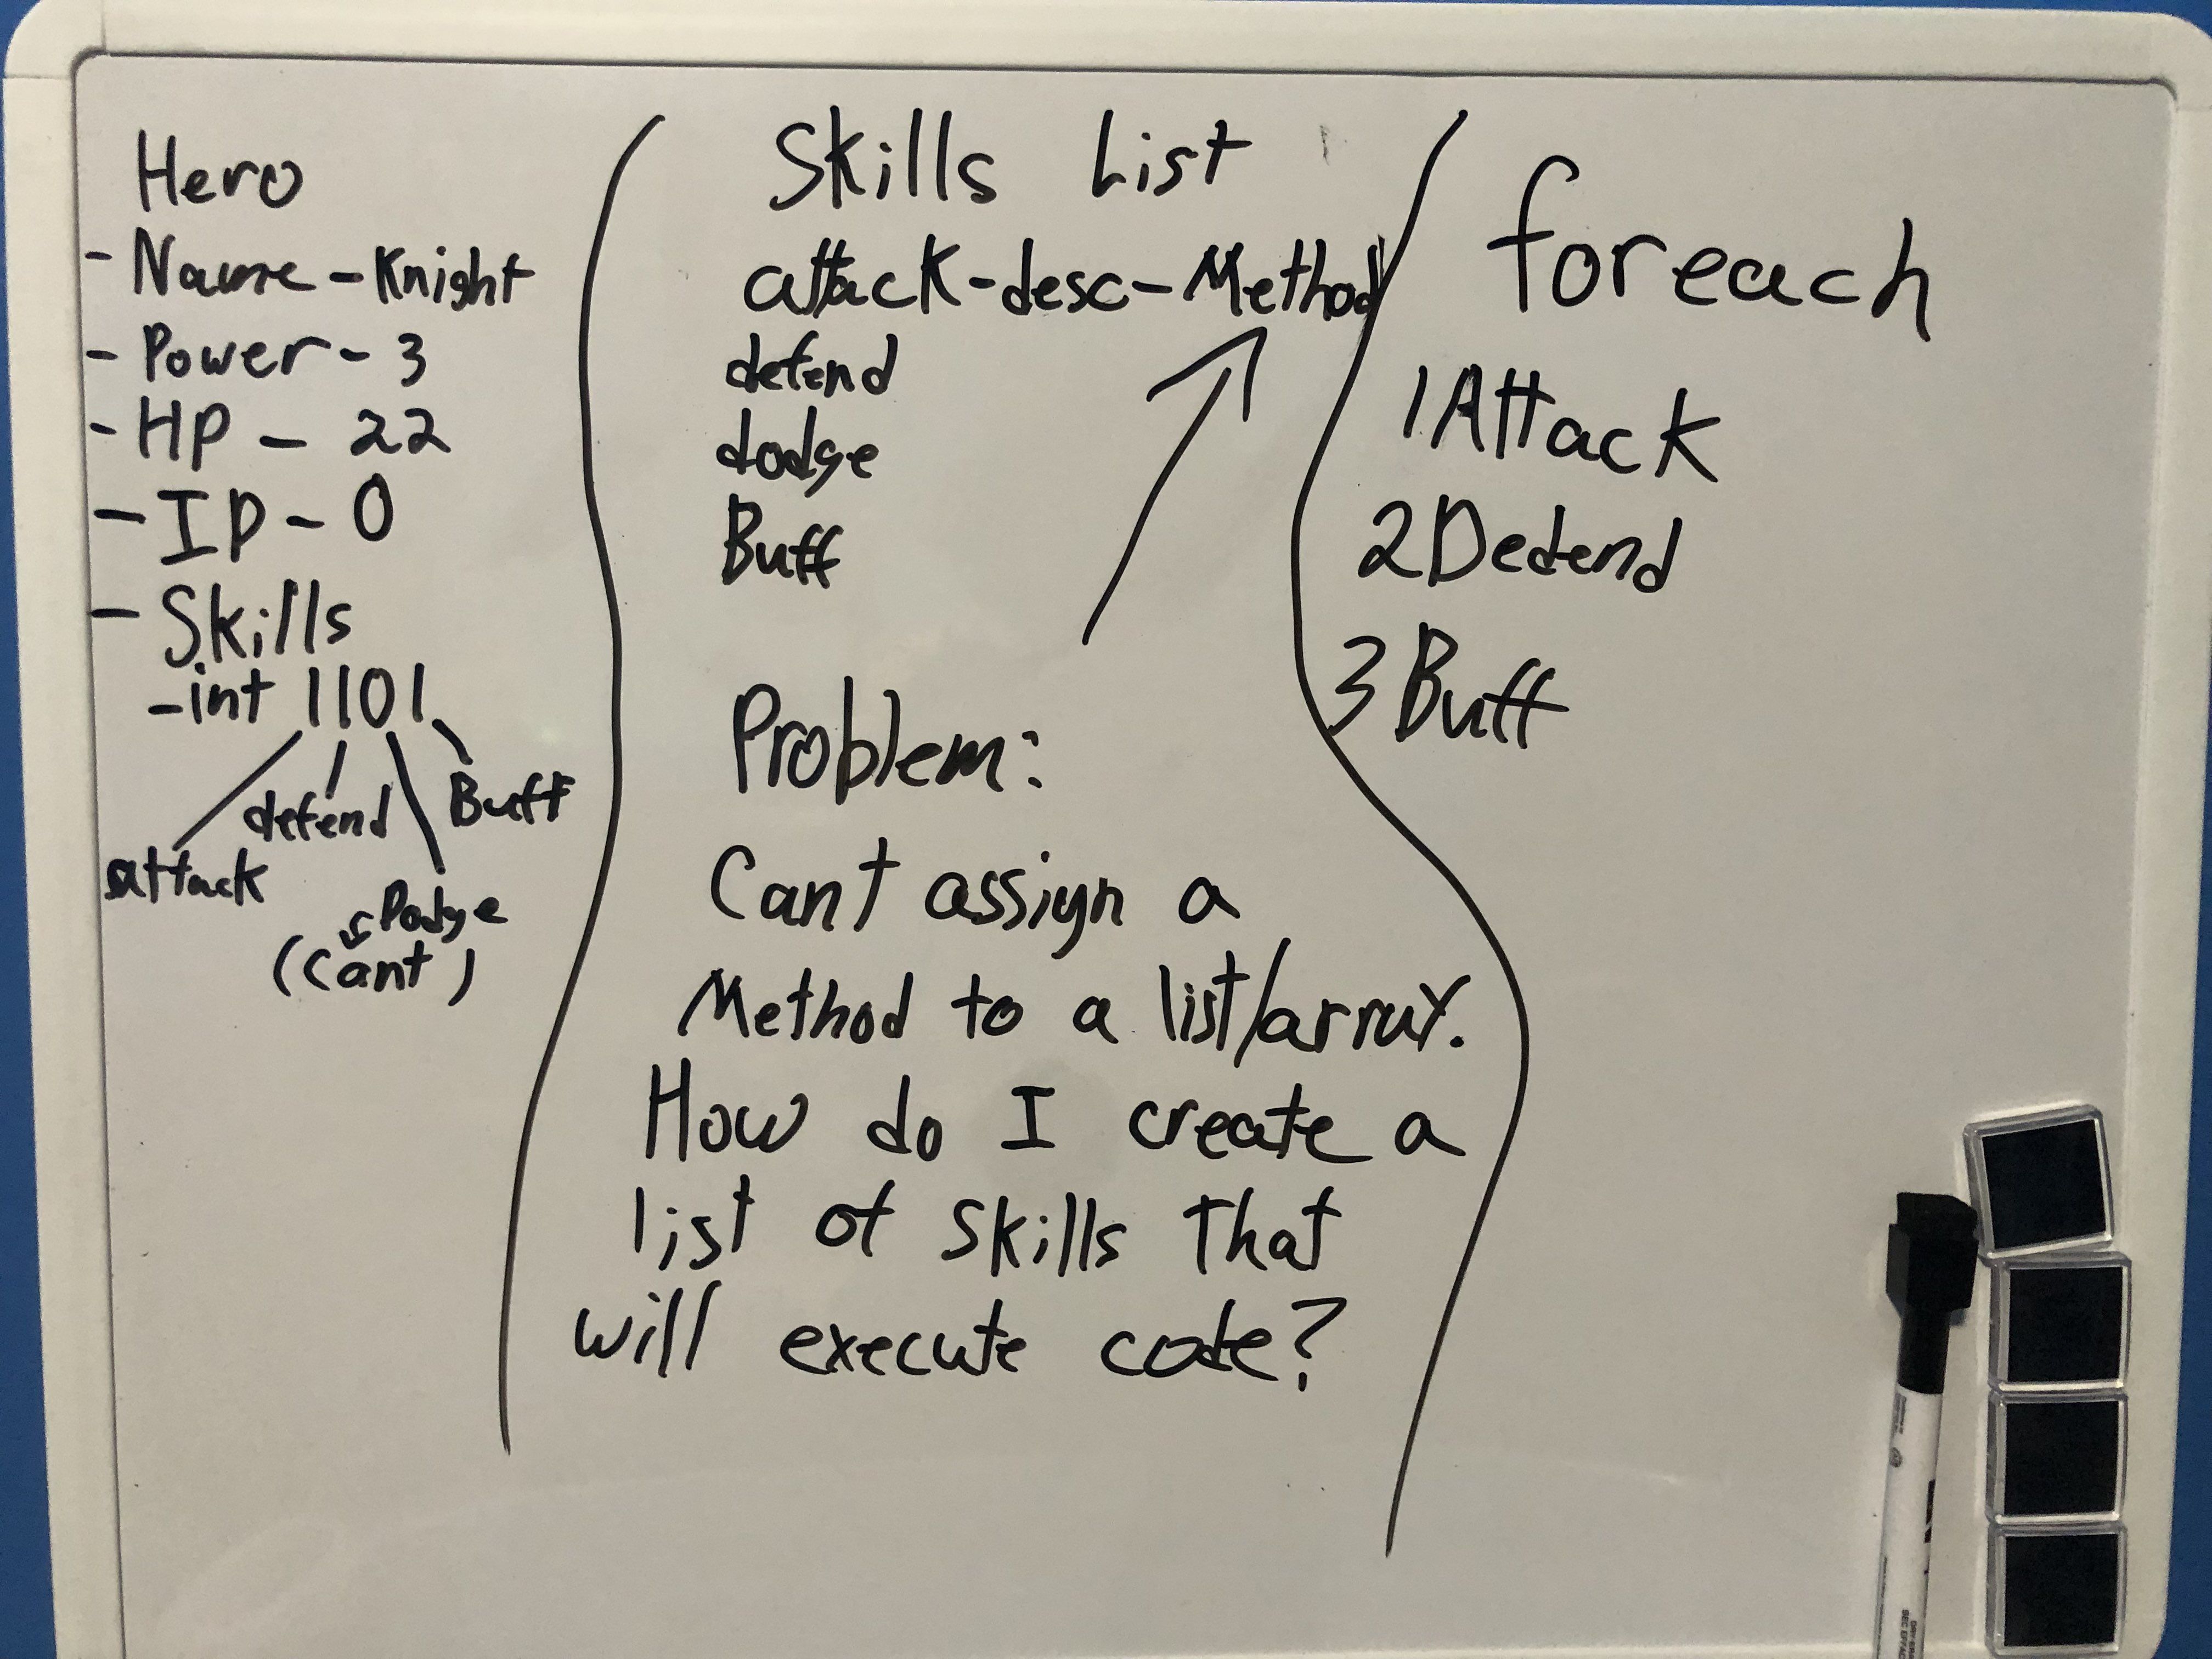 Hero
- Name - Knight
- Power - 3
- HP - 22
- ID - 0
- Skills
- int 1101
attack
defend
Dodge
(Cant)
Buff
Skills List
attack-desc-Method
defend
dodge
Buff
Problem:
Cant assign a
Method to a list/array.
How do I create a
list of skills that
will execute code?
foreach
1 Attack
2 Dedend
3 Buff